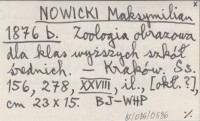 NOWICKI Maksymilian
1876 b. Zoologia obrazowa
dla klas wyższych szkół
średnich. – Kraków. Ss.
156, 278, XXVIII, il., [okł.?],
cm 23 x 15. BJ-WHP